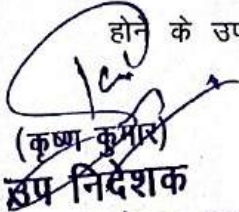 होने के उप
(कृष्ण कुमार)
उप निदेशक